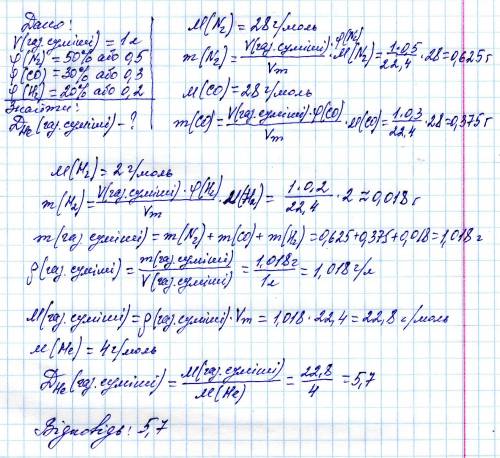 Дано:
V(газ. суміші) = 1 л
φ(N₂) = 50% або 0,5
φ(CO) = 30% або 0,3
φ(H₂) = 20% або 0,2
Знайти:
D_He(газ. суміші) - ?
M(N₂) = 28 г/моль
m(N₂) = V(газ. суміші)·φ(N₂)/Vm · M(N₂) = 1·0,5/22,4 · 28 = 0,625 г
M(CO) = 28 г/моль
m(CO) = V(газ. суміші)·φ(CO)/Vm · M(CO) = 1·0,3/22,4 · 28 = 0,375 г
M(H₂) = 2 г/моль
m(H₂) = V(газ. суміші)·φ(H₂)/Vm · M(H₂) = 1·0,2/22,4 · 2 ≈ 0,018 г
m(газ. суміші) = m(N₂) + m(CO) + m(H₂) = 0,625+0,375+0,018 = 1,018 г
ρ(газ. суміші) = m(газ. суміші)/V(газ. суміші) = 1,018 г/1 л = 1,018 г/л
M(газ. суміші) = ρ(газ. суміші)·Vm = 1,018·22,4 = 22,8 г/моль
M(He) = 4 г/моль
D_He(газ. суміші) = M(газ. суміші)/M(He) = 22,8/4 = 5,7
Відповідь: 5,7